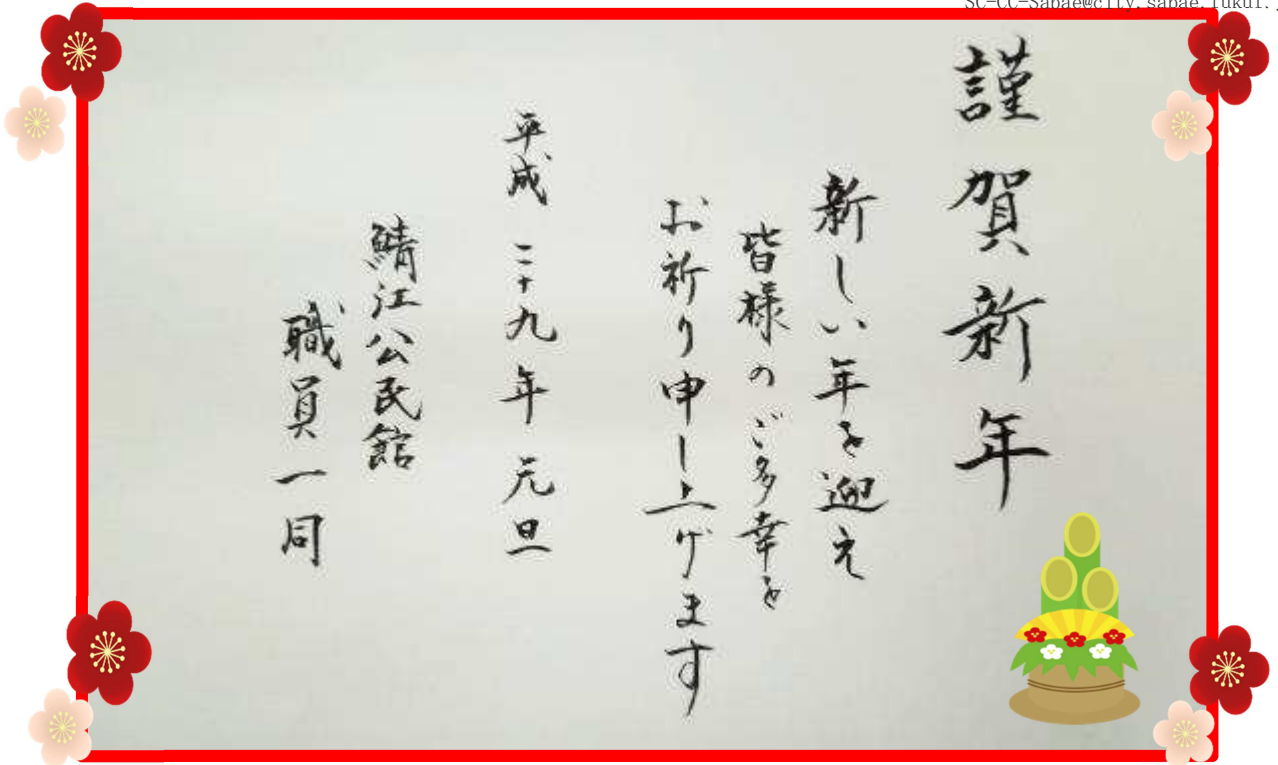 SC-CC-Sabae@city.sabae.fukui.j
謹賀新年
新しい年を迎え
皆様のご多幸を
お祈り申し上げます
平成二十九年元旦
鯖江公民館
職員一同